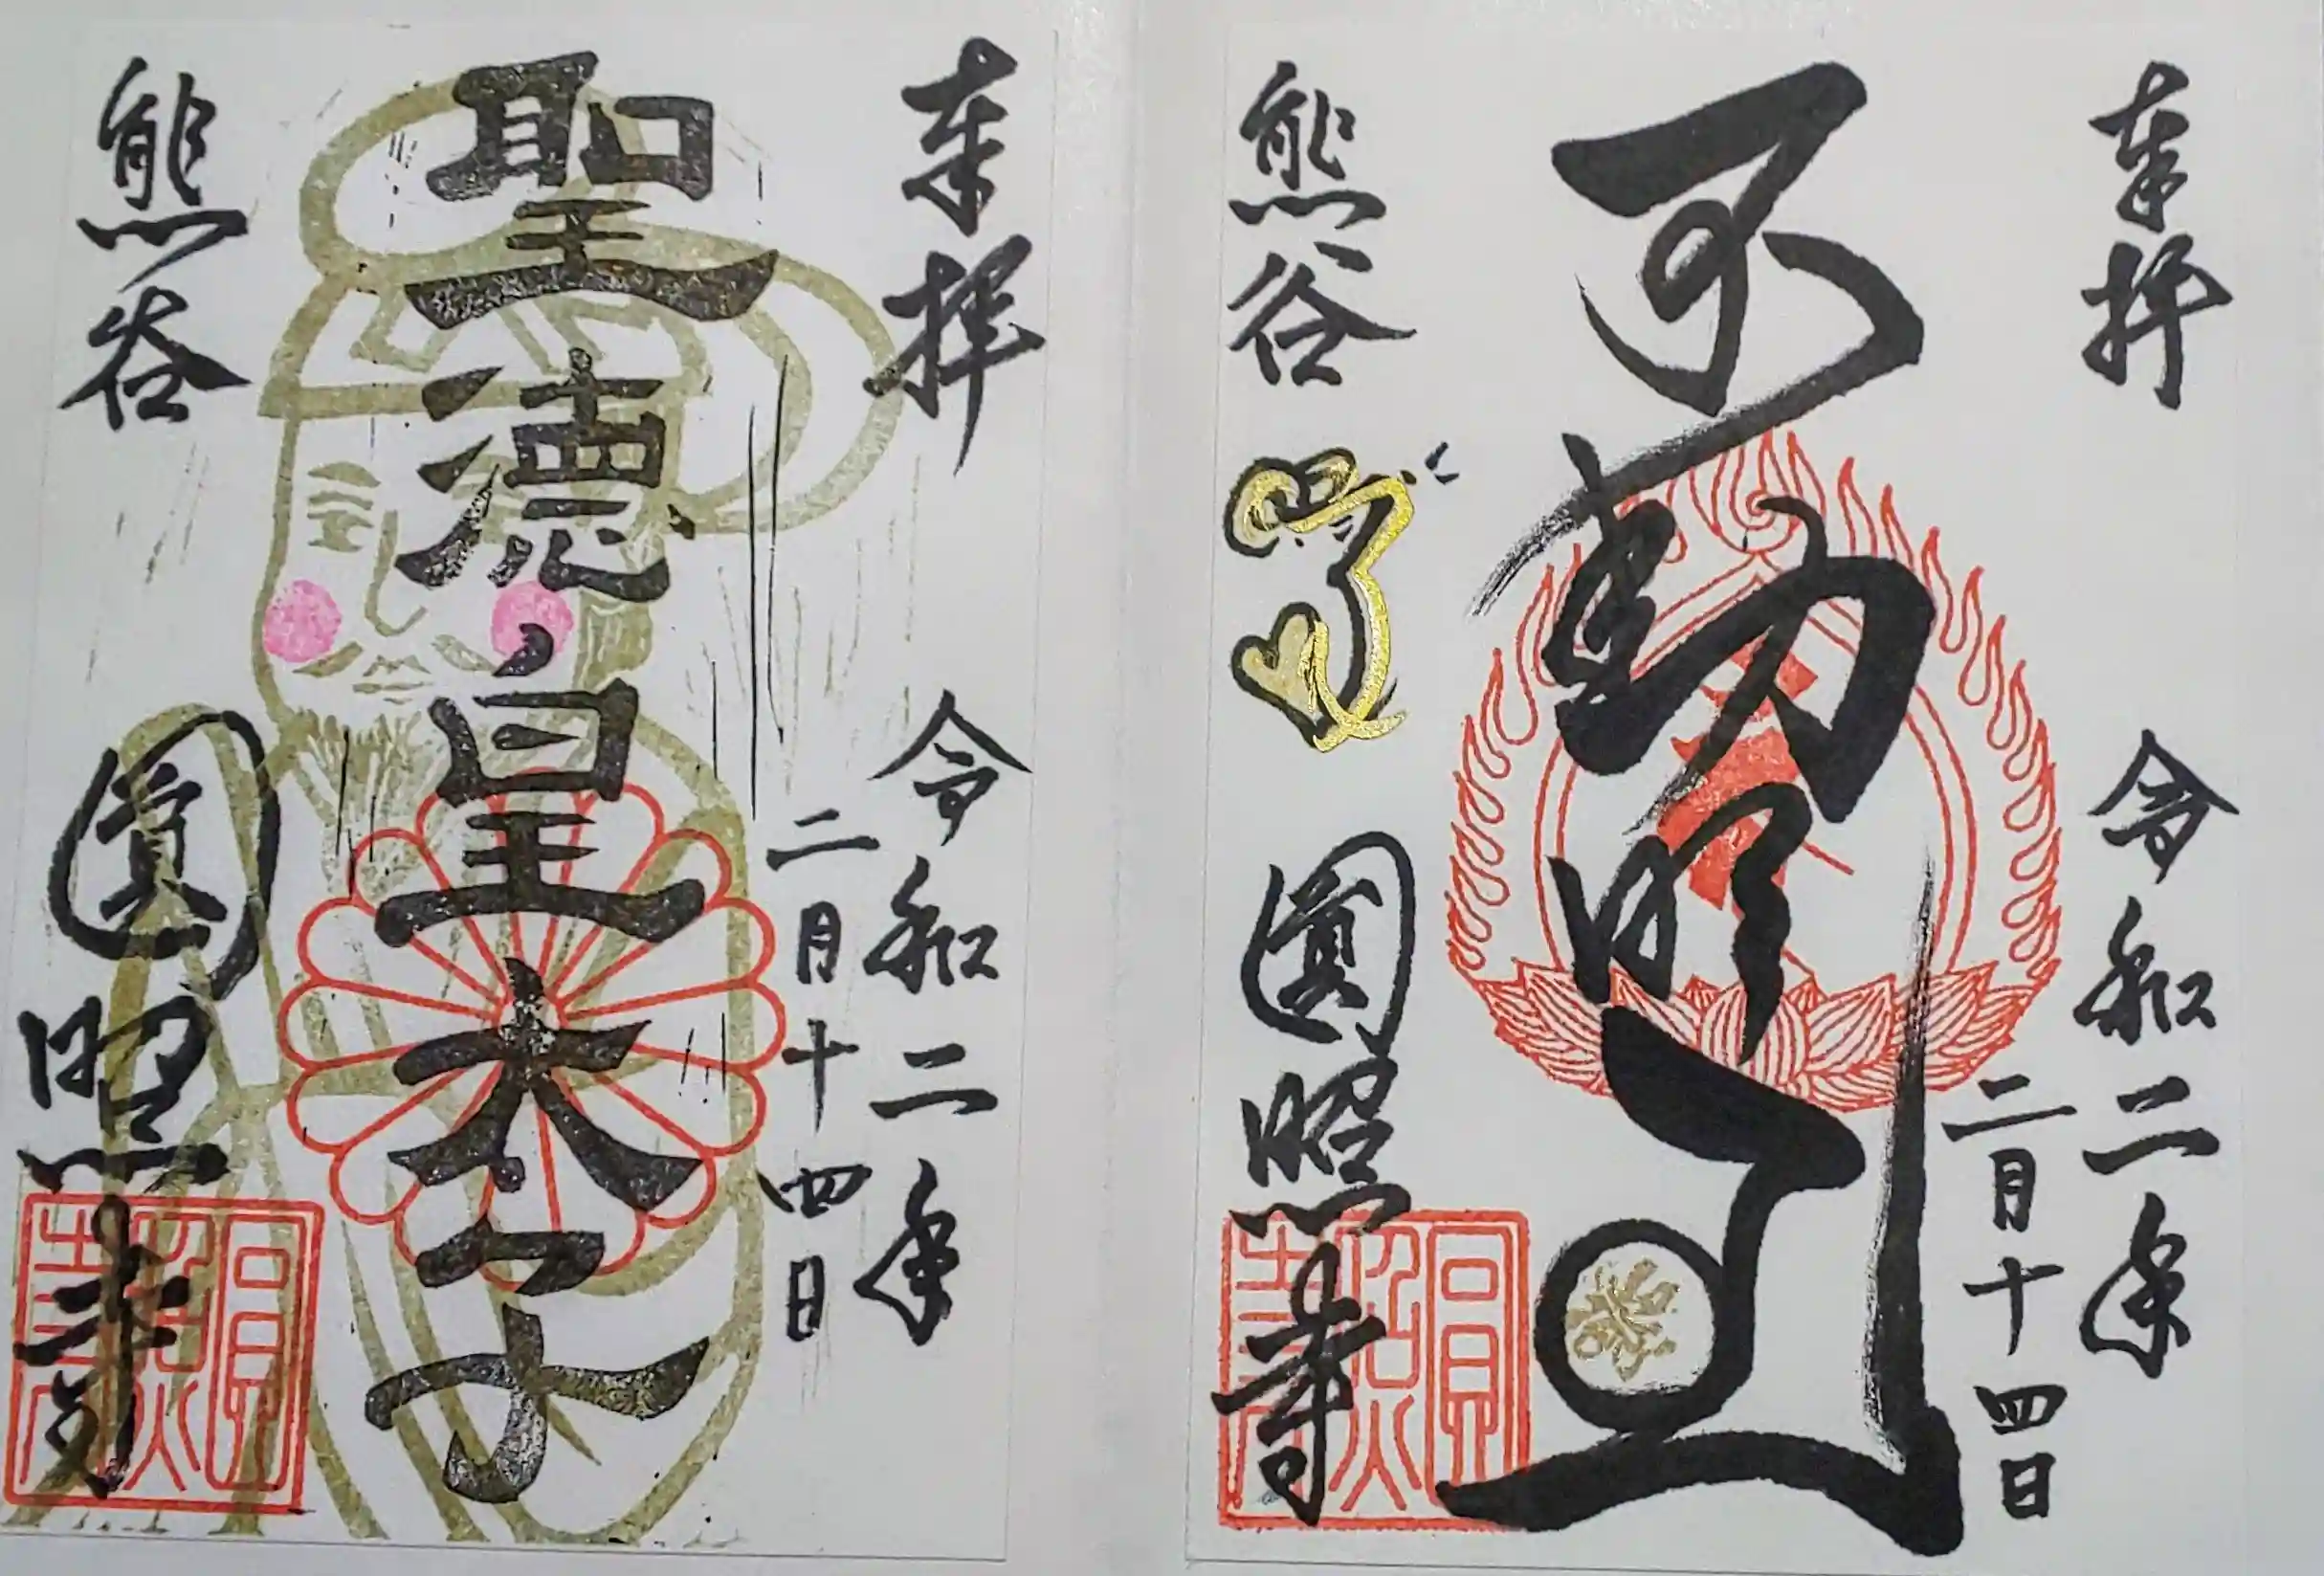 奉拝
令和二年
二月十四日
不動明王
熊谷
圓照寺
圓照寺
奉拝
令和二年
二月十四日
聖徳皇太子
熊谷
圓照寺
圓照寺